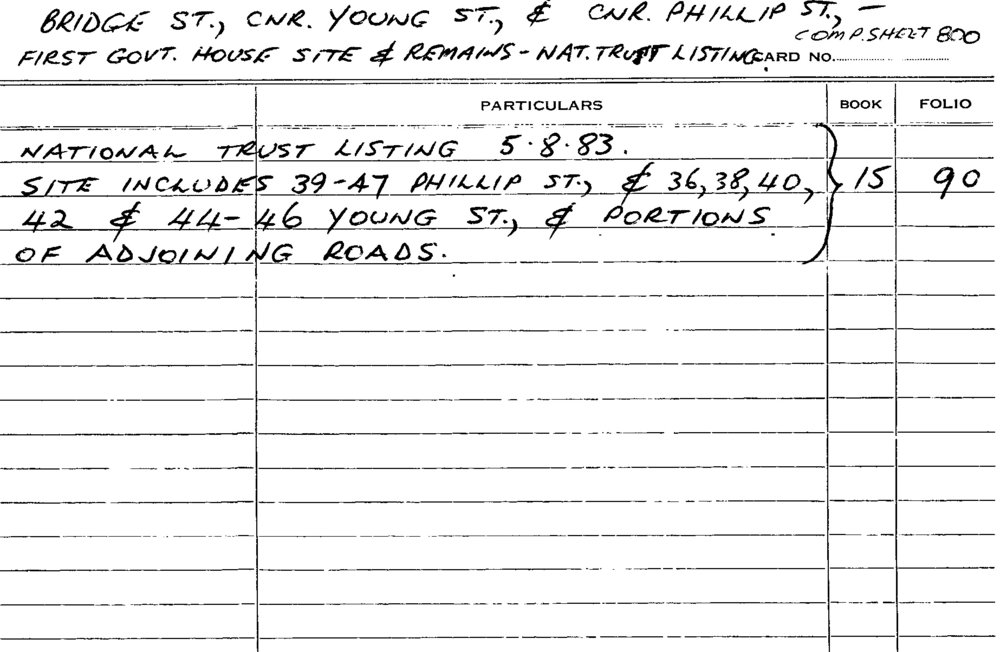 BRIDGE ST., CNR. YOUNG ST., & CNR. PHILLIP ST., —
COMP.SHEET 800
FIRST GOVT. HOUSE SITE & REMAINS - NAT. TRUST LISTING CARD NO.
PARTICULARS BOOK FOLIO
NATIONAL TRUST LISTING 5.8.83.
SITE INCLUDES 39-47 PHILLIP ST., & 36, 38, 40, 15 90
42 & 44-46 YOUNG ST., & PORTIONS
OF ADJOINING ROADS.